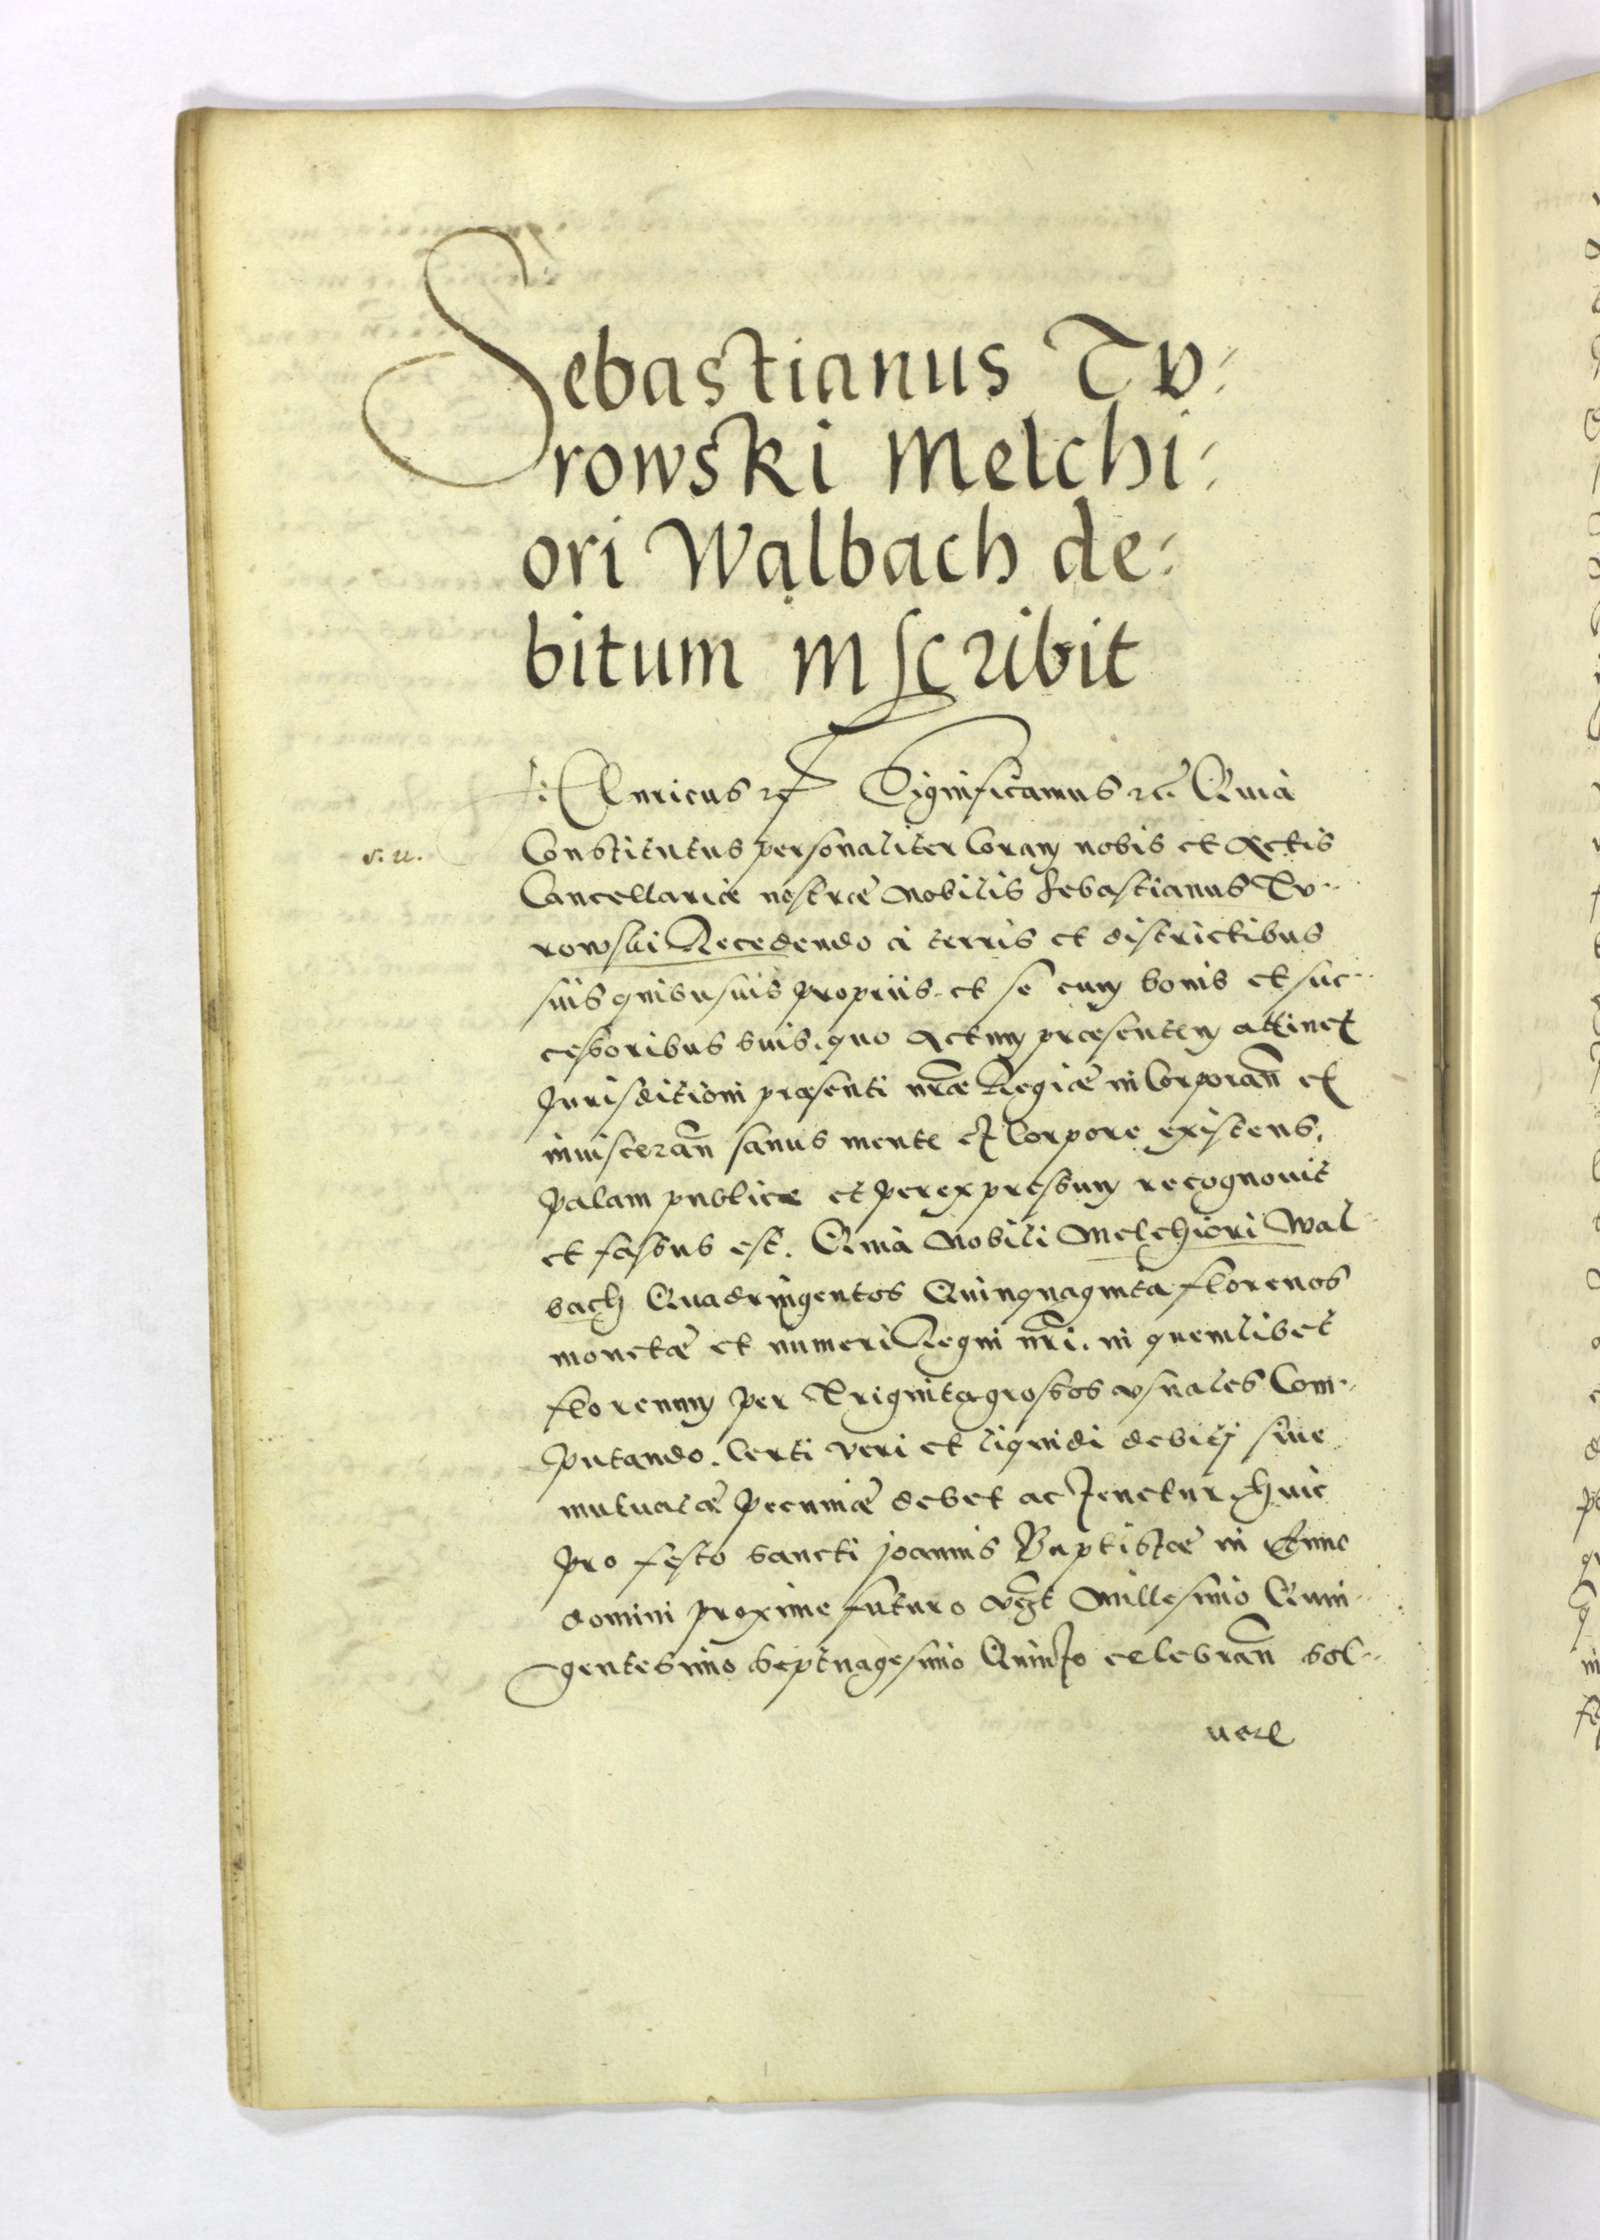 Sebastianus Tv-
rowski Melchi-
ori Walbach de-
bitum inscribit
Henricus etc Significamus etc Quia
Constitutus personaliter coram nobis et Actis
Cancellariæ nostræ Nobilis Sebastianus Tv-
rowski Recedendo à terris et districtibus
suis quibusuis proprijs et se cum bonis et suc-
cessoribus suis, quo Actum præsentem attinet
Jurisditioni præsenti nræ Regiæ incorporan et
inuisceran sanus mente et corpore existens,
palam publicæ et per expressum recognouit
et fassus est. Quia Nobili Melchiori Wal-
bach Quadringentos Quinquaginta florenos
monetæ et numeri Regni nri. in quemlibet
florenum per Triginta grossos vsuales Com-
putando. Certi veri et liquidi debitj siue
mutuatæ pecuniæ debet ac tenetur, huic
pro festo sancti joannis Baptistæ in Anno
domini proxime futuro Millesimo Quin-
gentesimo Septuagesimo Quinto celebran sol-
uere